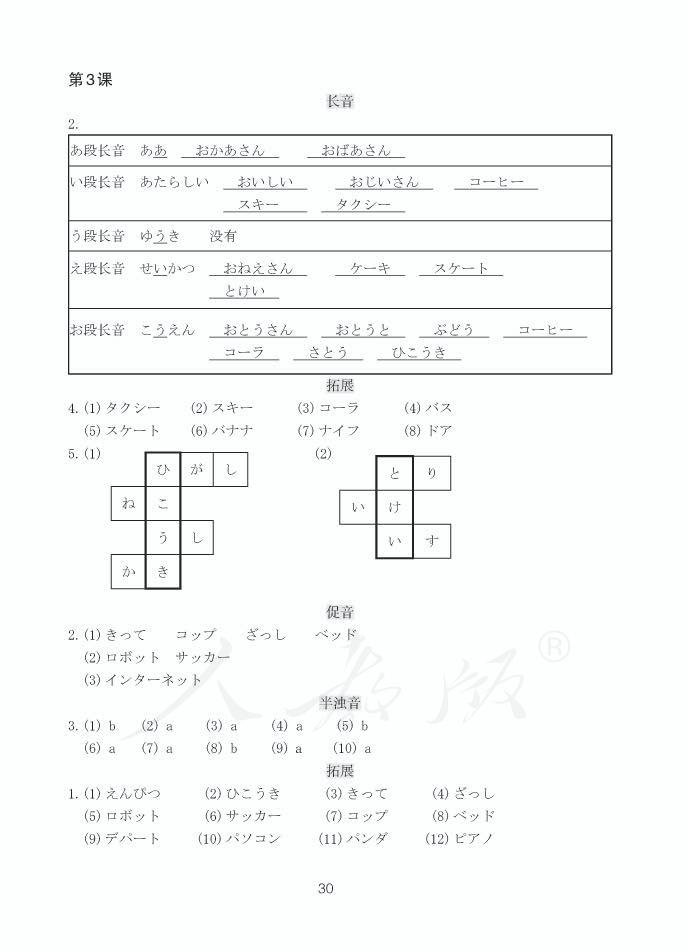 第3课
长音
2.
あ段长音 ああ おかあさん おばあさん
い段长音 あたらしい おいしい おじいさん コーヒー
スキー タクシー
う段长音 ゆうき 没有
え段长音 せいかつ おねえさん ケーキ スケート
とけい
お段长音 こうえん おとうさん おとうと ぶどう コーヒー
コーラ さとう ひこうき
拓展
4. (1) タクシー (2) スキー (3) コーラ (4) バス
(5) スケート (6) バナナ (7) ナイフ (8) ドア
5. (1) (2)
ひ が し
ね こ
う し
か き
と り
い け
い す
促音
2. (1) きって コップ ざっし ベッド
(2) ロボット サッカー
(3) インターネット
人教版®
半浊音
3. (1) b (2) a (3) a (4) a (5) b
(6) a (7) a (8) b (9) a (10) a
拓展
1. (1) えんぴつ (2) ひこうき (3) きって (4) ざっし
(5) ロボット (6) サッカー (7) コップ (8) ベッド
(9) デパート (10) パソコン (11) パンダ (12) ピアノ
30